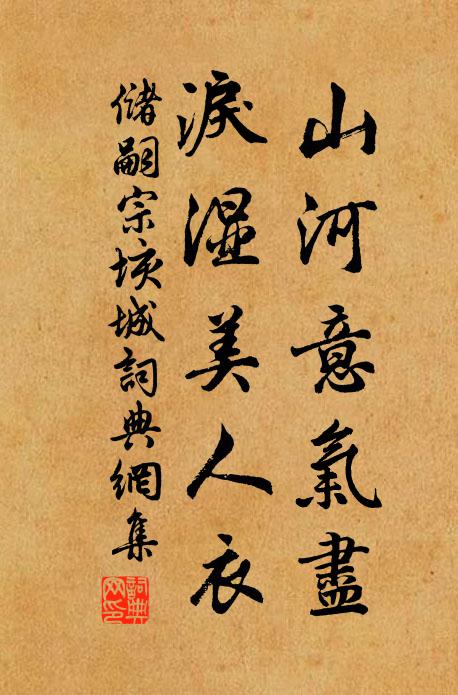 山河意氣盡
淚湿美人衣
儲嗣宗垓城詞典網集
詞典网印